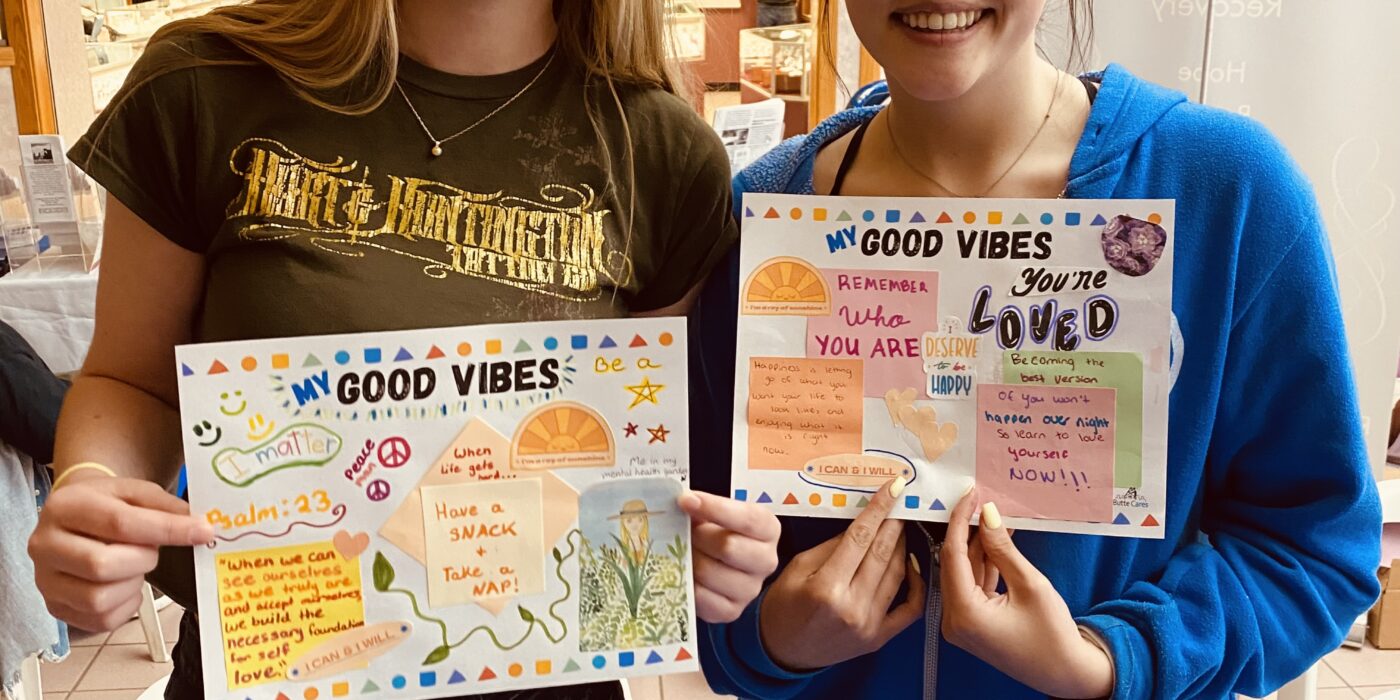 Recovery
Hope
HART & HUNTINGTON
TATTOO CO
MY GOOD VIBES
Be a
I matter
Peace
man
Psalm: 23
When
Life gets
hard...
Have a
SNACK
+
Take a
NAP!
I'm a ray of sunshine
Me in my
mental health garden
"When we can
see ourselves
as we truly are
and accept ourselves,
we build the
necessary foundation
for self
love."
I CAN & I WILL
MY GOOD VIBES
I'm a ray of sunshine
REMEMBER
Who
YOU ARE
You're
LOVED
I
DESERVE
to be
HAPPY
Happiness is letting
go of what you
want your life to
look like and
enjoying what it
is right
now.
I CAN & I WILL
Becoming the
best version
Of you won't
happen over night
So learn to love
yourself
NOW!!!
Butte Cares